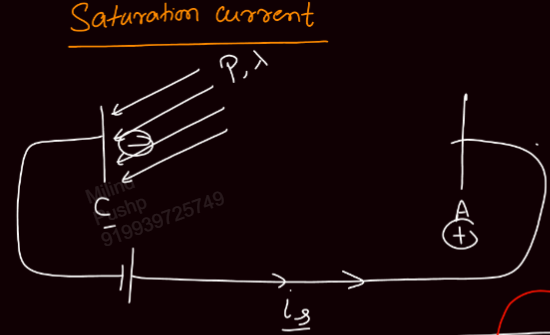 Saturation current
P, λ
−
Milind
Pushp
919939725749
C
A
+
is